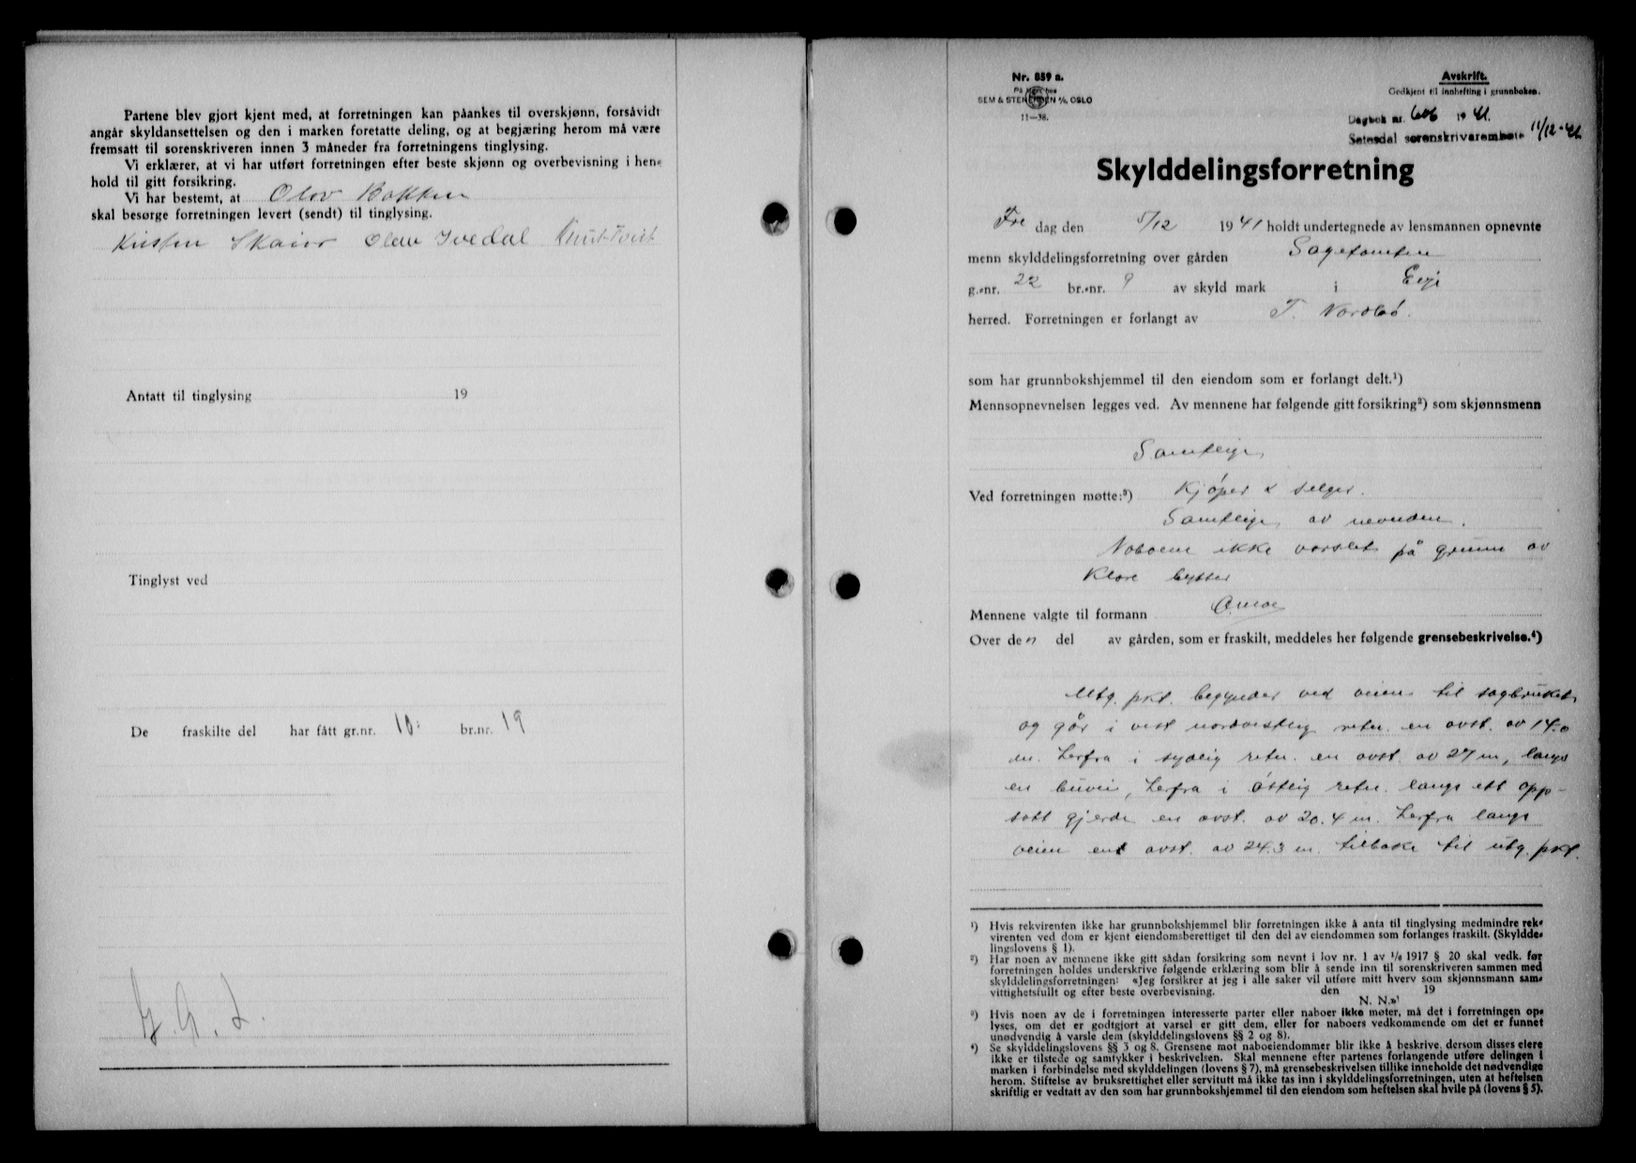 Partene blev gjort kjent med, at forretningen kan påankes til overskjønn, forsåvidt
angår skyldansettelsen og den i marken foretatte deling, og at begjæring herom må være
fremsatt til sorenskriveren innen 3 måneder fra forretningens tinglysing.
Vi erklærer, at vi har utført forretningen efter beste skjønn og overbevisning i hen-
hold til gitt forsikring.
Vi har bestemt, at Olov Bakken
skal besørge forretningen levert (sendt) til tinglysing.
Kristen Skaiaa Olav Ivedal
Antatt til tinglysing 19
Tinglyst ved
De fraskilte del har fått gr.nr. 10: br.nr. 19
Nr. 859 a.
SEM & STENERSEN A/S, OSLO
11-38.
Avskrift.
Godkjent til innhefting i grunnboken.
Dagbok nr. 606 1941.
Setesdal sorenskriverembete 11/12-41
Skylddelingsforretning
Fre dag den 5/12 1941 holdt undertegnede av lensmannen opnevnte
menn skylddelingsforretning over gården Sagetomten
g.-nr. 22 br.-nr. 9 av skyld mark i Evje
herred. Forretningen er forlangt av T. Nordbø.
som har grunnbokshjemmel til den eiendom som er forlangt delt.¹)
Mennsopnevnelsen legges ved. Av mennene har følgende gitt forsikring²) som skjønnsmenn
Samtlige
Ved forretningen møtte:³) Kjøper & selger.
Samtlige av nevnden.
Naboene ikke varslet på grunn av
klare bytter
Mennene valgte til formann
Over de n del av gården, som er fraskilt, meddeles her følgende grensebeskrivelse.⁴)
Utg. pkt. begynder ved veien til sagbruket
og går i vest nordvestlig retn. en avst. av 14.0
m. herfra i sydlig retn. en avst. av 27 m, langs
en buvei, herfra i østlig retn. langs ett opp-
satt gjerde en avst. av 20.4 m. herfra langs
veien en avst. av 24.3 m. tilbake til utg. pkt.
¹) Hvis rekvirenten ikke har grunnbokshjemmel blir forretningen ikke å anta til tinglysing medmindre rek-
virenten ved dom er kjent eiendomsberettiget til den del av eiendommen som forlanges fraskilt. (Skyldde-
lingslovens § 1).
²) Har noen av mennene ikke gitt sådan forsikring som nevnt i lov nr. 1 av 1/6 1917 § 20 skal vedk. før
forretningen holdes underskrive følgende erklæring som blir å sende inn til sorenskriveren sammen med
skylddelingsforretningen: «Jeg forsikrer at jeg i alle saker vil utføre mitt hverv som skjønnsmann sam-
vittighetsfullt og efter beste overbevisning. den 19
N. N.»
³) Hvis noen av de i forretningen interesserte parter eller naboer ikke møter, må det i forretningen op-
lyses, om det er godtgjort at varsel er gitt dem, eller for naboers vedkommende om det er funnet
unødvendig å varsle dem (skylddelingslovens §§ 2 og 8).
⁴) Se skylddelingslovens §§ 3 og 8. Grensene mot naboeiendommer blir ikke å beskrive, dersom disses eiere
ikke er tilstede og samtykker i beskrivelsen. Skal mennene efter partenes forlangende utføre delingen i
marken i forbindelse med skylddelingen (lovens § 7), må grensebeskrivelsen tillike inneholde det nødvendige
herom. Stiftelse av bruksrettighet eller servitutt må ikke tas inn i skylddelingsforretningen, uten at heftelsen
skriftlig er vedtatt av den som har grunnbokshjemmel til den eiendom som heftelsen skal hvile på (lovens § 5).